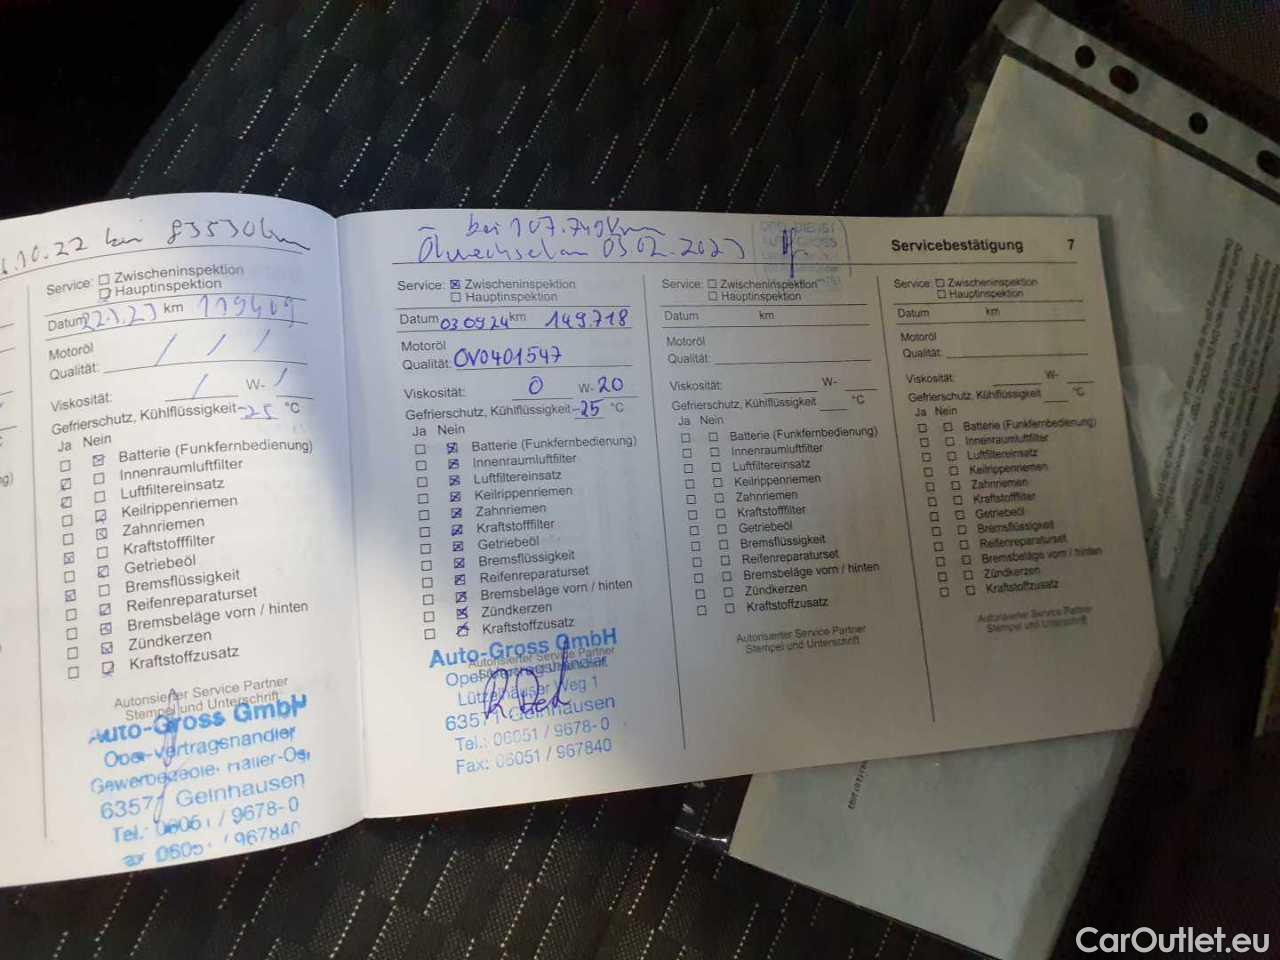 .10.22 bei 83530km
Service: Zwischeninspektion
Hauptinspektion
Datum 22.. 23 km 119409
Motoröl
Qualität: / / /
Viskosität: / W- /
Gefrierschutz, Kühlflüssigkeit -25 °C
Ja Nein
Batterie (Funkfernbedienung)
Innenraumluftfilter
Luftfiltereinsatz
Keilrippenriemen
Zahnriemen
Kraftstofffilter
Getriebeöl
Bremsflüssigkeit
Reifenreparaturset
Bremsbeläge vorn / hinten
Zündkerzen
Kraftstoffzusatz
Autorisierter Service Partner
Stempel und Unterschrift
Auto-Gross GmbH
Opel-Vertragshändler
63571 Gelnhausen
Tel.: 06051 / 9678-0
06051 / 967840
bei 107.749km
Ölwechsel am 03.02.2023
Service: Zwischeninspektion
Hauptinspektion
Datum 03 09 24 km 149.718
Motoröl
Qualität: OV0401547
Viskosität: 0 W- 20
Gefrierschutz, Kühlflüssigkeit -25 °C
Ja Nein
Batterie (Funkfernbedienung)
Innenraumluftfilter
Luftfiltereinsatz
Keilrippenriemen
Zahnriemen
Kraftstofffilter
Getriebeöl
Bremsflüssigkeit
Reifenreparaturset
Bremsbeläge vorn / hinten
Zündkerzen
Kraftstoffzusatz
Autorisierter Service Partner
Auto-Gross GmbH
Opel-Vertragshändler
Lützelhäuser Weg 1
63571 Gelnhausen
Tel.: 06051 / 9678-0
Fax: 06051 / 967840
Servicebestätigung 7
Service: Zwischeninspektion
Hauptinspektion
Datum km
Motoröl
Qualität:
Viskosität: W-
Gefrierschutz, Kühlflüssigkeit °C
Ja Nein
Batterie (Funkfernbedienung)
Innenraumluftfilter
Luftfiltereinsatz
Keilrippenriemen
Zahnriemen
Kraftstofffilter
Getriebeöl
Bremsflüssigkeit
Reifenreparaturset
Bremsbeläge vorn / hinten
Zündkerzen
Kraftstoffzusatz
Autorisierter Service Partner
Stempel und Unterschrift
Service: Zwischeninspektion
Hauptinspektion
Datum km
Motoröl
Qualität:
Viskosität: W-
Gefrierschutz, Kühlflüssigkeit °C
Ja Nein
Batterie (Funkfernbedienung)
Innenraumluftfilter
Luftfiltereinsatz
Keilrippenriemen
Zahnriemen
Kraftstofffilter
Getriebeöl
Bremsflüssigkeit
Reifenreparaturset
Bremsbeläge vorn / hinten
Zündkerzen
Kraftstoffzusatz
Autorisierter Service Partner
Stempel und Unterschrift
CarOutlet.eu